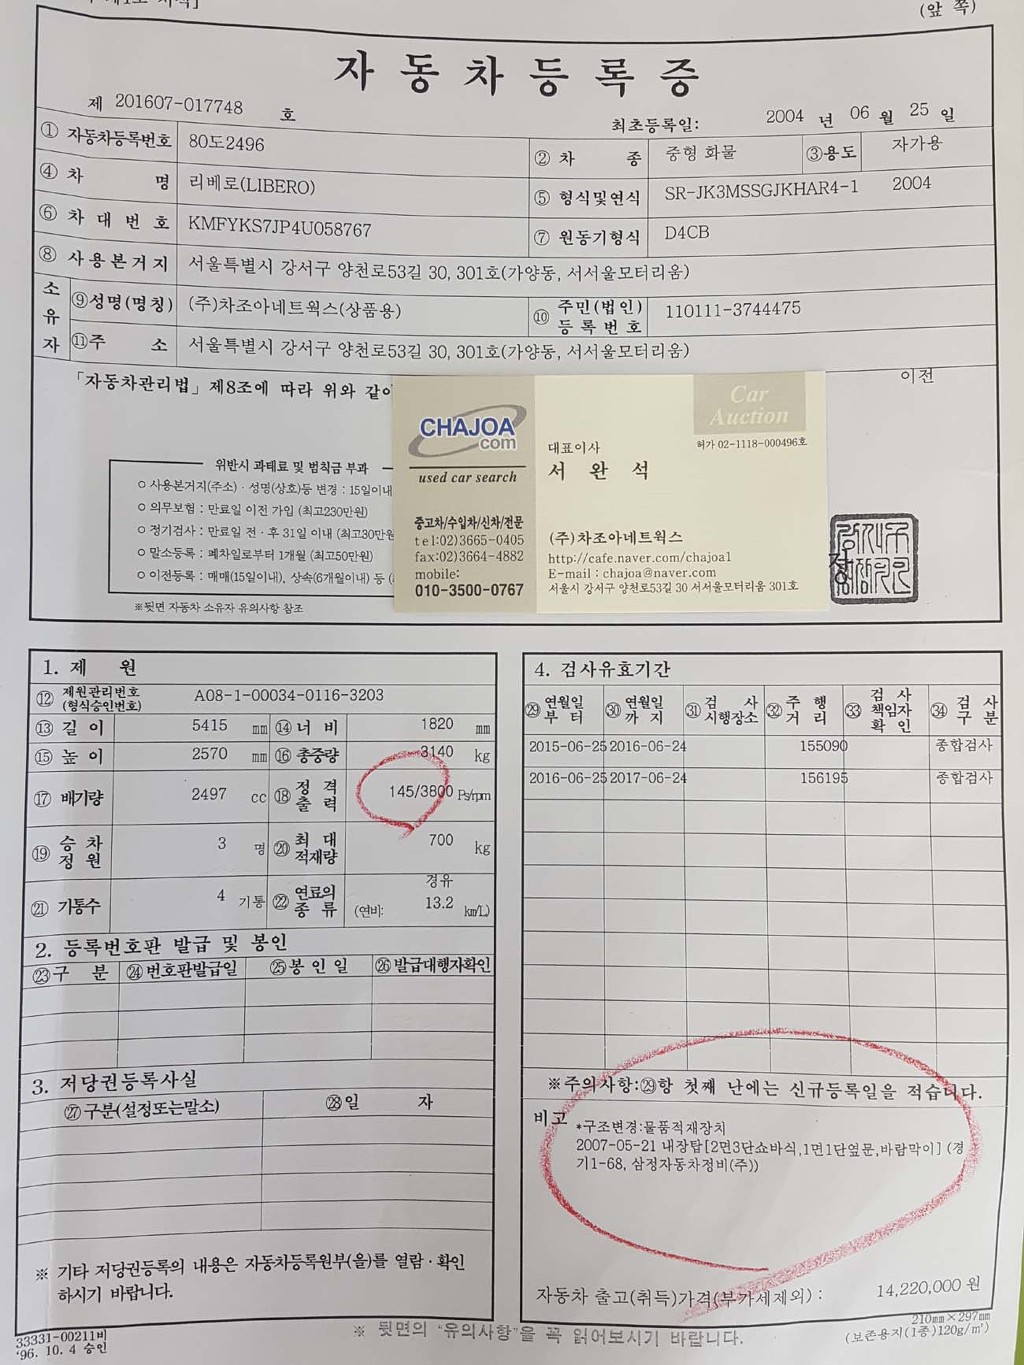 (앞 쪽)
자동차등록증
제 201607-017748 호
최초등록일: 2004 년 06 월 25 일
① 자동차등록번호 80도2496 ② 차 종 중형 화물 ③용도 자가용
④ 차 명 리베로(LIBERO) ⑤ 형식및연식 SR-JK3MSSGJKHAR4-1 2004
⑥ 차대번호 KMFYKS7JP4U058767 ⑦ 원동기형식 D4CB
⑧ 사용본거지 서울특별시 강서구 양천로53길 30, 301호(가양동, 서서울모터리움)
소유자 ⑨성명(명칭) (주)차조아네트웍스(상품용) ⑩ 주민(법인)등록번호 110111-3744475
⑪주 소 서울특별시 강서구 양천로53길 30, 301호(가양동, 서서울모터리움)
「자동차관리법」제8조에 따라 위와 같이
이전
위반시 과태료 및 범칙금 부과
○ 사용본거지(주소)·성명(상호)등 변경 : 15일이내
○ 의무보험 : 만료일 이전 가입 (최고230만원)
○ 정기검사 : 만료일 전·후 31일 이내 (최고30만원
○ 말소등록 : 폐차일로부터 1개월 (최고50만원)
○ 이전등록 : 매매(15일이내), 상속(6개월이내) 등
※뒷면 자동차 소유자 유의사항 참조
CHAJOA
com
used car search
중고차/수입차/신차/전문
tel:02)3665-0405
fax:02)3664-4882
mobile:
010-3500-0767
Car
Auction
허가 02-1118-000496호
대표이사
서 완 석
(주)차조아네트웍스
http://cafe.naver.com/chajoa1
E-mail : chajoa@naver.com
서울시 강서구 양천로53길 30 서서울모터리움 301호
장
1. 제 원
⑫ 제원관리번호(형식승인번호) A08-1-00034-0116-3203
⑬ 길 이 5415 mm ⑭ 너 비 1820 mm
⑮ 높 이 2570 mm ⑯ 총중량 3140 kg
⑰ 배기량 2497 cc ⑱ 정격출력 145/3800 Ps/rpm
⑲ 승차정원 3 명 ⑳ 최대적재량 700 kg
㉑ 기통수 4 기통 ㉒ 연료의종류 경유 (연비: 13.2 km/L)
2. 등록번호판 발급 및 봉인
㉓구 분 ㉔번호판발급일 ㉕봉인일 ㉖발급대행자확인
3. 저당권등록사실
㉗구분(설정또는말소) ㉘일 자
※ 기타 저당권등록의 내용은 자동차등록원부(을)를 열람·확인
하시기 바랍니다.
4. 검사유효기간
㉙ 연월일부터 ㉚ 연월일까지 ㉛ 검사시행장소 ㉜ 주행거리 ㉝ 검사책임자확인 ㉞ 검사구분
2015-06-25 2016-06-24 155090 종합검사
2016-06-25 2017-06-24 156195 종합검사
※주의사항:㉙항 첫째 난에는 신규등록일을 적습니다.
비고 *구조변경:물품적재장치
2007-05-21 내장탑[2면3단쇼바식,1면1단옆문,바람막이] (경
기1-68, 삼정자동차정비(주))
자동차 출고(취득)가격(부가세제외) : 14,220,000 원
33331-00211비
'96. 10. 4 승인
※ 뒷면의 "유의사항"을 꼭 읽어보시기 바랍니다.
210㎜×297㎜
(보존용지(1종)120g/㎡)